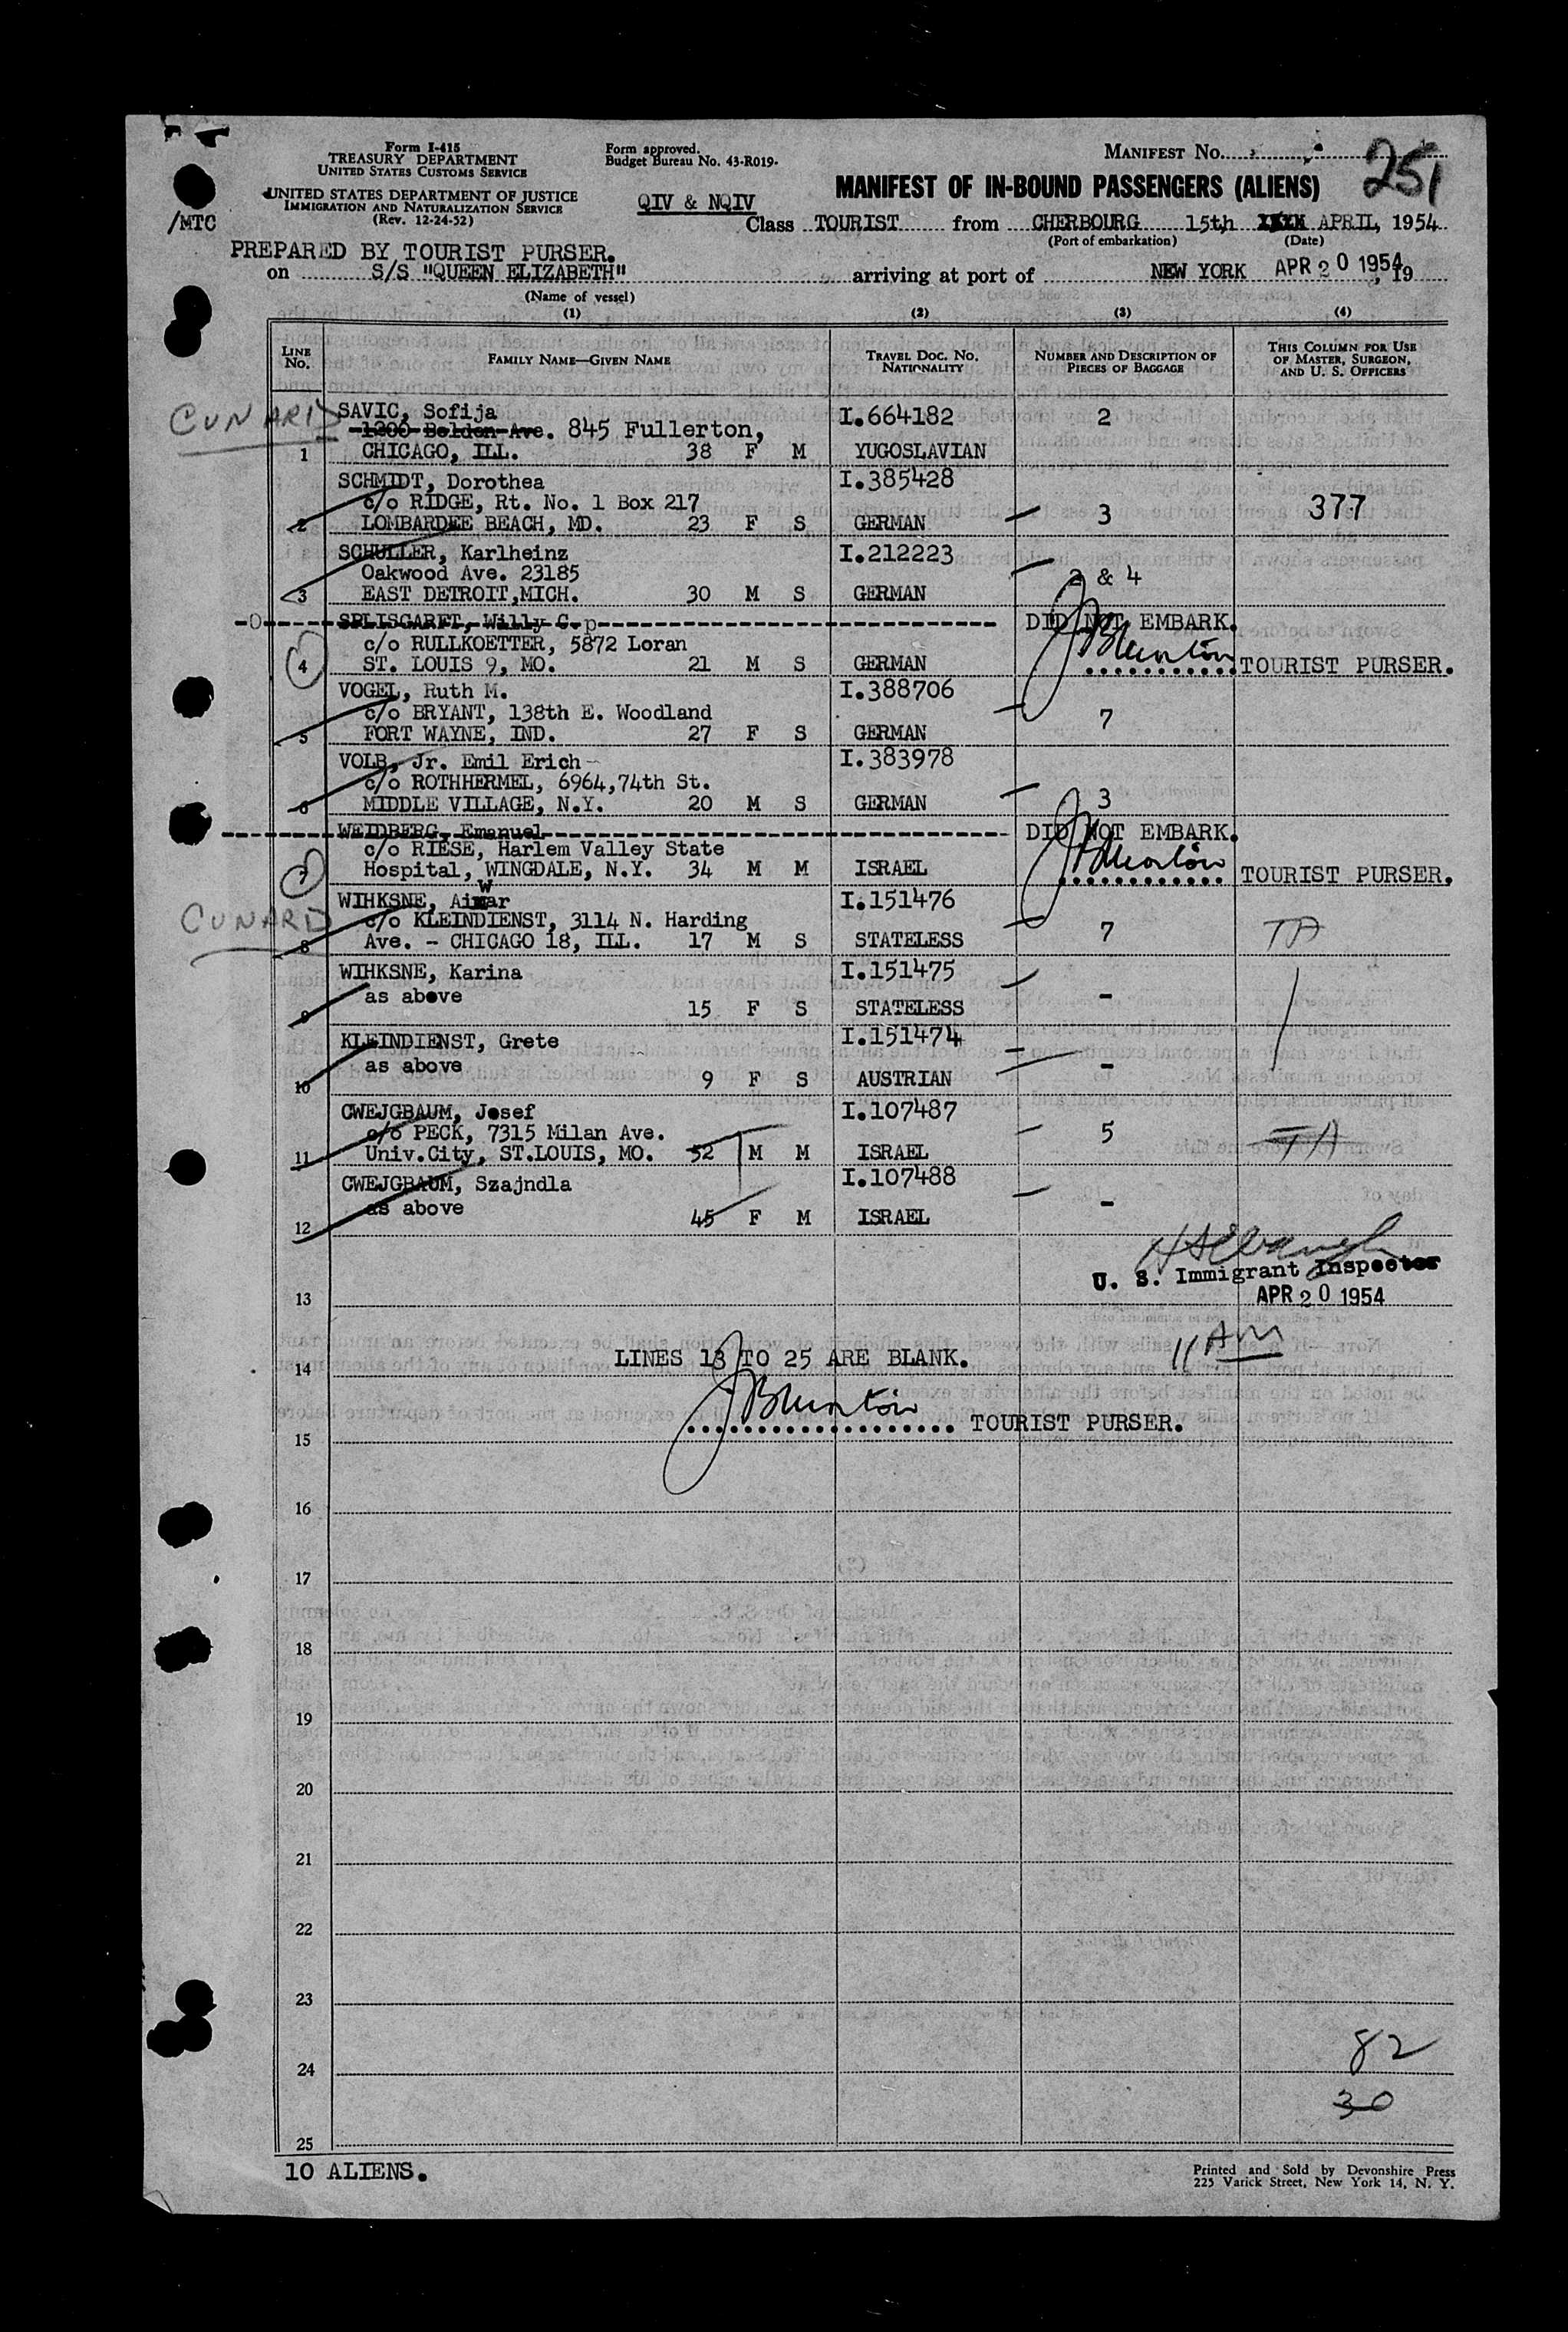 Form I-415
TREASURY DEPARTMENT
UNITED STATES CUSTOMS SERVICE
UNITED STATES DEPARTMENT OF JUSTICE
IMMIGRATION AND NATURALIZATION SERVICE
(Rev. 12-24-52)
/MTC
Form approved.
Budget Bureau No. 43-R019.
MANIFEST No.
251
MANIFEST OF IN-BOUND PASSENGERS (ALIENS)
QIV & NQIV
Class TOURIST from CHERBOURG 15th APRIL, 1954
(Port of embarkation) (Date)
PREPARED BY TOURIST PURSER.
on S/S "QUEEN ELIZABETH" arriving at port of NEW YORK APR 20 1954, 19
(Name of vessel)
(1) (2) (3) (4)
LINE No. FAMILY NAME—GIVEN NAME TRAVEL DOC. No. NATIONALITY NUMBER AND DESCRIPTION OF PIECES OF BAGGAGE THIS COLUMN FOR USE OF MASTER, SURGEON, AND U. S. OFFICERS
CUNARD
SAVIC, Sofija I.664182 2
1200 Belden Ave. 845 Fullerton,
1 CHICAGO, ILL. 38 F M YUGOSLAVIAN
SCHMIDT, Dorothea I.385428
c/o RIDGE, Rt. No. 1 Box 217 377
2 LOMBARDEE BEACH, MD. 23 F S GERMAN 3
SCHULLER, Karlheinz I.212223
Oakwood Ave. 23185 2 & 4
3 EAST DETROIT,MICH. 30 M S GERMAN
-0- SPLISGARET, Willy C.p DID NOT EMBARK.
c/o RULLKOETTER, 5872 Loran
4 ST. LOUIS 9, MO. 21 M S GERMAN TOURIST PURSER.
VOGEL, Ruth M. I.388706
c/o BRYANT, 138th E. Woodland 7
5 FORT WAYNE, IND. 27 F S GERMAN
VOLB, Jr. Emil Erich I.383978
c/o ROTHHERMEL, 6964,74th St.
6 MIDDLE VILLAGE, N.Y. 20 M S GERMAN 3
WEIDBERG, Emanuel DID NOT EMBARK.
c/o RIESE, Harlem Valley State
7 Hospital, WINGDALE, N.Y. 34 M M ISRAEL TOURIST PURSER.
CUNARD
WIHKSNE, Aiwar I.151476
c/o KLEINDIENST, 3114 N. Harding
8 Ave. - CHICAGO 18, ILL. 17 M S STATELESS 7 TA
WIHKSNE, Karina I.151475
as above -
9 15 F S STATELESS
KLEINDIENST, Grete I.151474
as above -
10 9 F S AUSTRIAN
CWEJGBAUM, Josef I.107487
c/o PECK, 7315 Milan Ave. 5 TA
11 Univ.City, ST.LOUIS, MO. 52 M M ISRAEL
CWEJGBAUM, Szajndla I.107488
as above -
12 45 F M ISRAEL
U. S. Immigrant Inspector
13 APR 20 1954
11 AM
14 LINES 13 TO 25 ARE BLANK.
15 TOURIST PURSER.
16
17
18
19
20
21
22
23
82
24
30
25
10 ALIENS.
Printed and Sold by Devonshire Press
225 Varick Street, New York 14, N. Y.